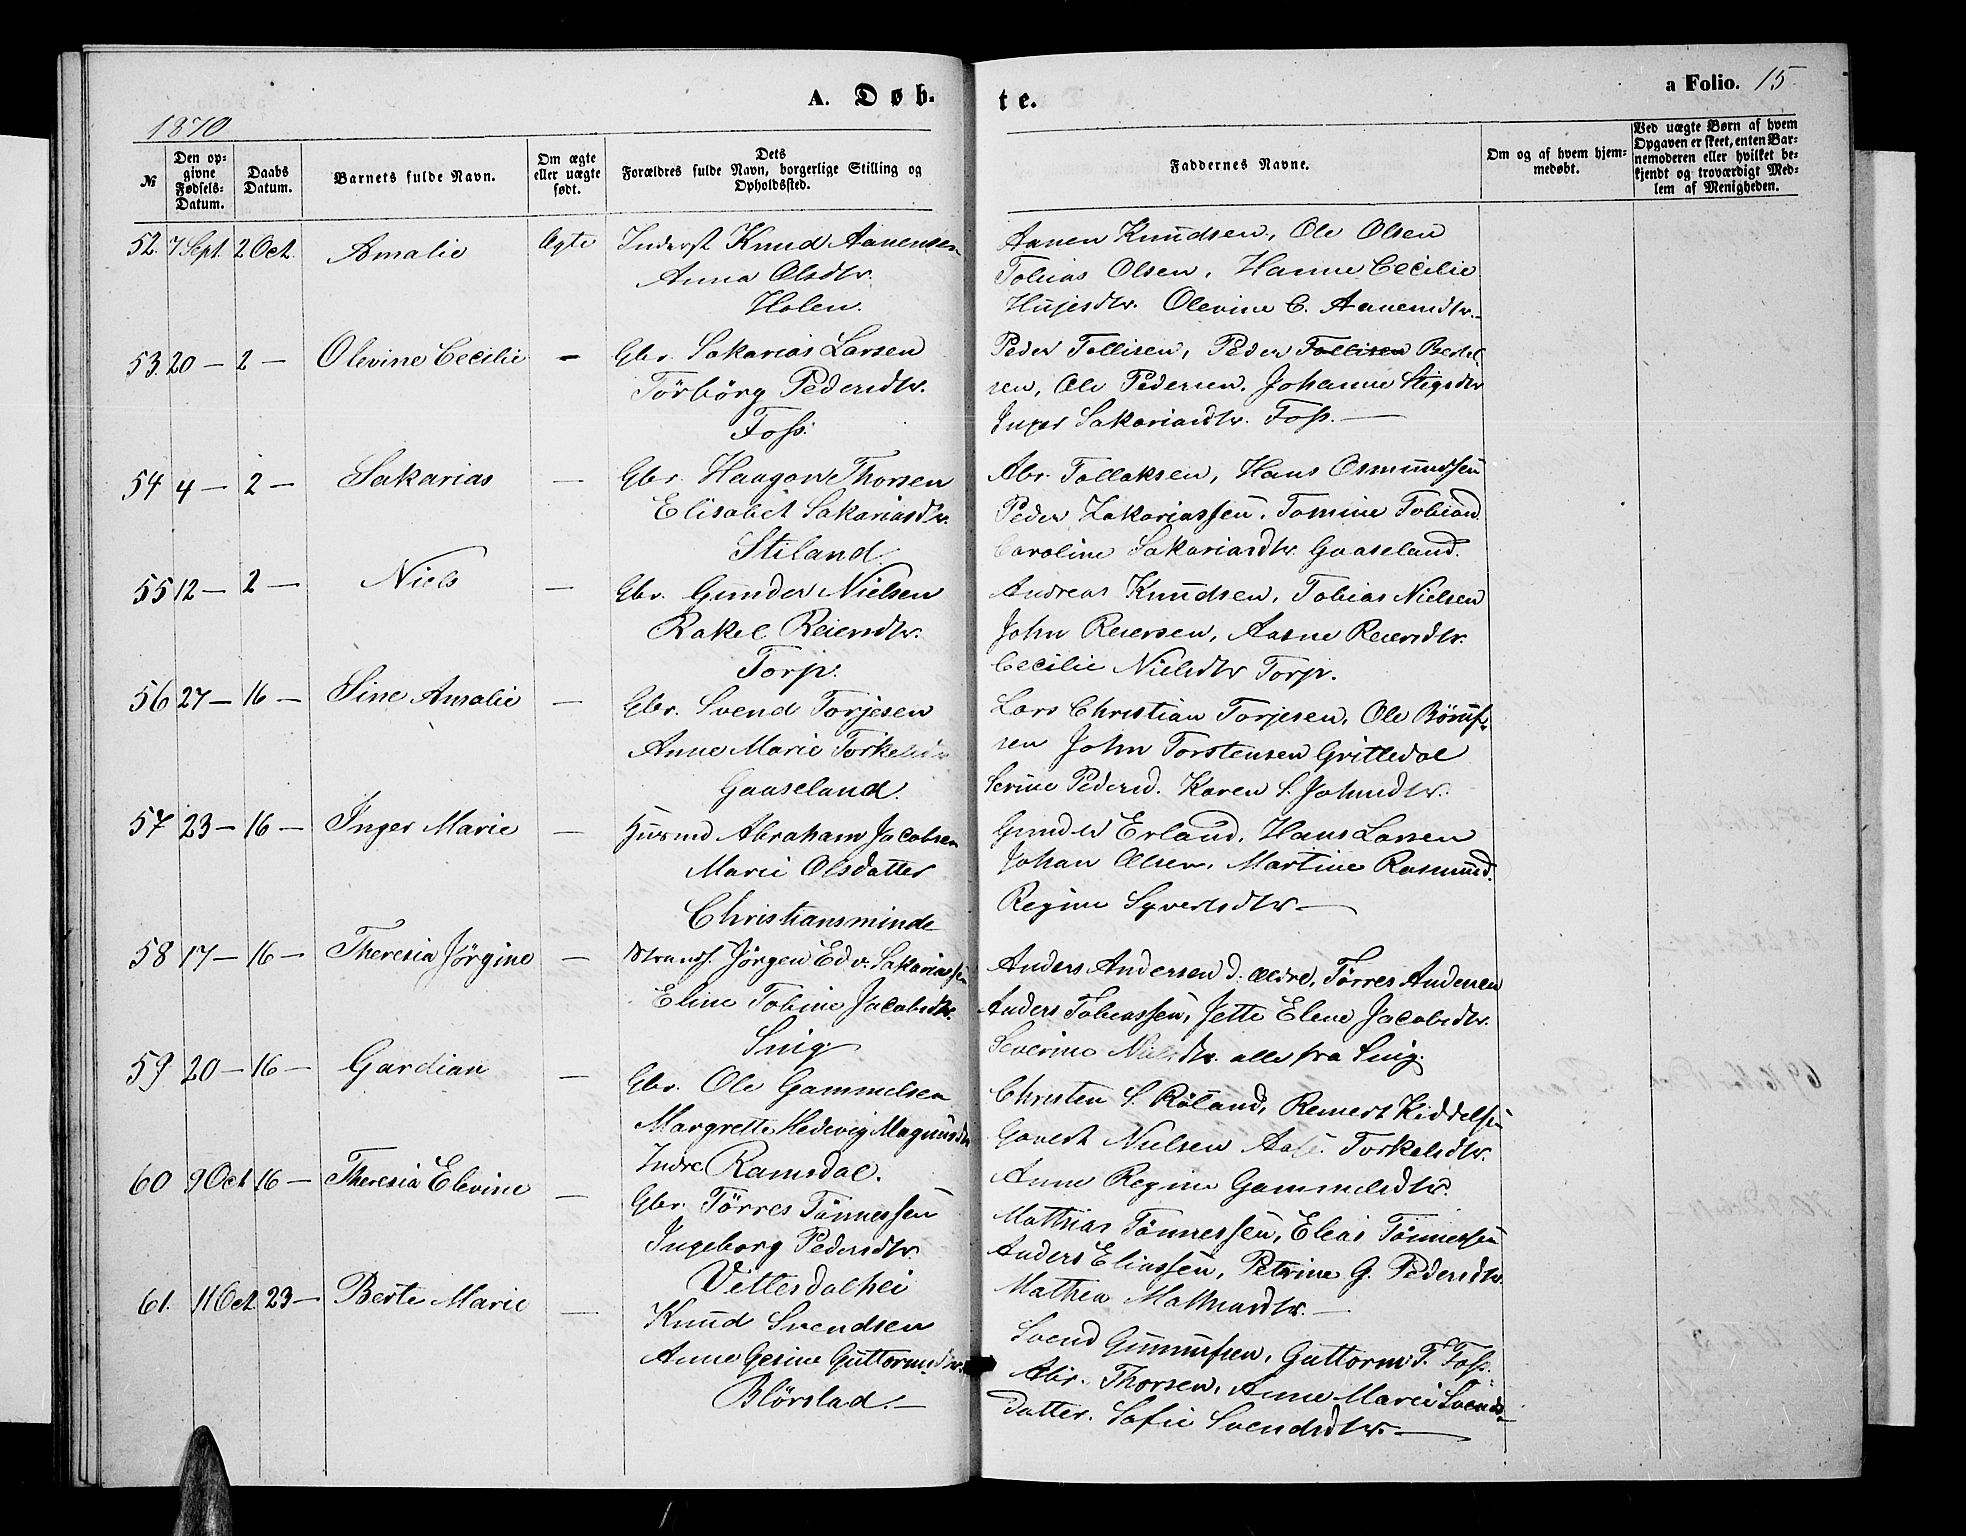 A. Døb-
te.
a Folio. 15
1870
№
Den opgivne Fødsels-Datum.
Daabs Datum.
Barnets fulde Navn.
Om ægte eller uægte født.
Dets Forældres fulde Navn, borgerlige Stilling og Opholdssted.
Faddernes Navne.
Om og af hvem hjemmedøbt.
Ved uægte Børn af hvem Opgaven er skeet, enten Barnemoderen eller hvilket bekjendt og troværdigt Medlem af Menigheden.
52. 7 Sept. 2 Oct. Amalie Ægte Inderst Knud Aanensen
Anna Olsdtr.
Holen.
Aanen Knudsen, Ole Olsen
Tobias Olsen, Hanne Cecilie
Olevine C. Aanensdtr.
53. 20 — 2 — Olevine Cecilie — Gbr. Sakarias Larsen
Törbörg Pedersdtr.
Foss.
Peder Tollisen, Peder Tollisen Bertel
sen, Ole Pedersen, Johanne Stigsdtr
Inger Sakariasdtr. Foss. —
54 4 — 2 — Sakarias — Gbr. Haagon Thorsen
Elisabet Sakariasdtr.
Stiland
Abr. Tollaksen, Hans Osmundsen
Peder Zakariassen, Tomine Tobiasd.
Caroline Sakariasdtr. Gaaseland.
55 12 — 2 — Niels — Gbr. Gunder Nielsen
Rakel Reiersdtr.
Torp.
Andreas Knudsen, Tobias Nielsen
John Reiersen, Aasne Reiersdtr.
Cecilie Nielsdtr Torp.
56 27 — 16 — Sine Amalie — Gbr. Svend Torjesen
Anne Marie Torkelsdtr
Gaaseland.
Lars Christian Torjesen, Ole
sen John Torstensen Grittedal
Serine Pedersd. Karen S. Johnsdtr.
57 23 — 16 — Inger Marie — Husmd Abraham Jacobsen
Marie Olsdatter
Christiansminde
Gunder Erland, Hans Larsen
Johan Olsen, Martine Rasmusd.
Regine Syvertsdtr —
58 17 — 16 — Theresia Jörgine — Strands. Jörgen Edv. Sakariassen
Eline Tobine Jacobsdtr.
Snig
Anders Andersen d. ældre, Törres Andersen
Anders Tobiassen, Jette Elene Jacobsdtr.
Severine Nielsdtr. alle fra Snig.
59 20 — 16 — Gardian — Gbr. Ole Gammelsen
Margrette Hedevig Magnusdtr
Indre Ramsdal.
Christen S. Röland, Reinert Kiddelsen
Govert Nielsen Aase Torkelsdtr.
Anne Regine Gammelsdtr.
60 9 Oct 16 — Theresia Elevine — Gbr. Törres Tönnessen
Ingeborg Pedersdtr.
Vittersdalhei
Mathias Tönnessen, Elias Tönnessen
Anders Eliassen, Petrine G. Pedersdtr.
Mathea Mathiasdtr. —
61. 11 Oct. 23 — Berte Marie — Knud Svendsen
Anne Gesine Guttormsdtr.
Blörstad. —
Svend Gunnufsen, Guttorm T. Foss.
Abr. Thorsen, Anne Marie Svends-
datter. Sofie Svendsdtr. —